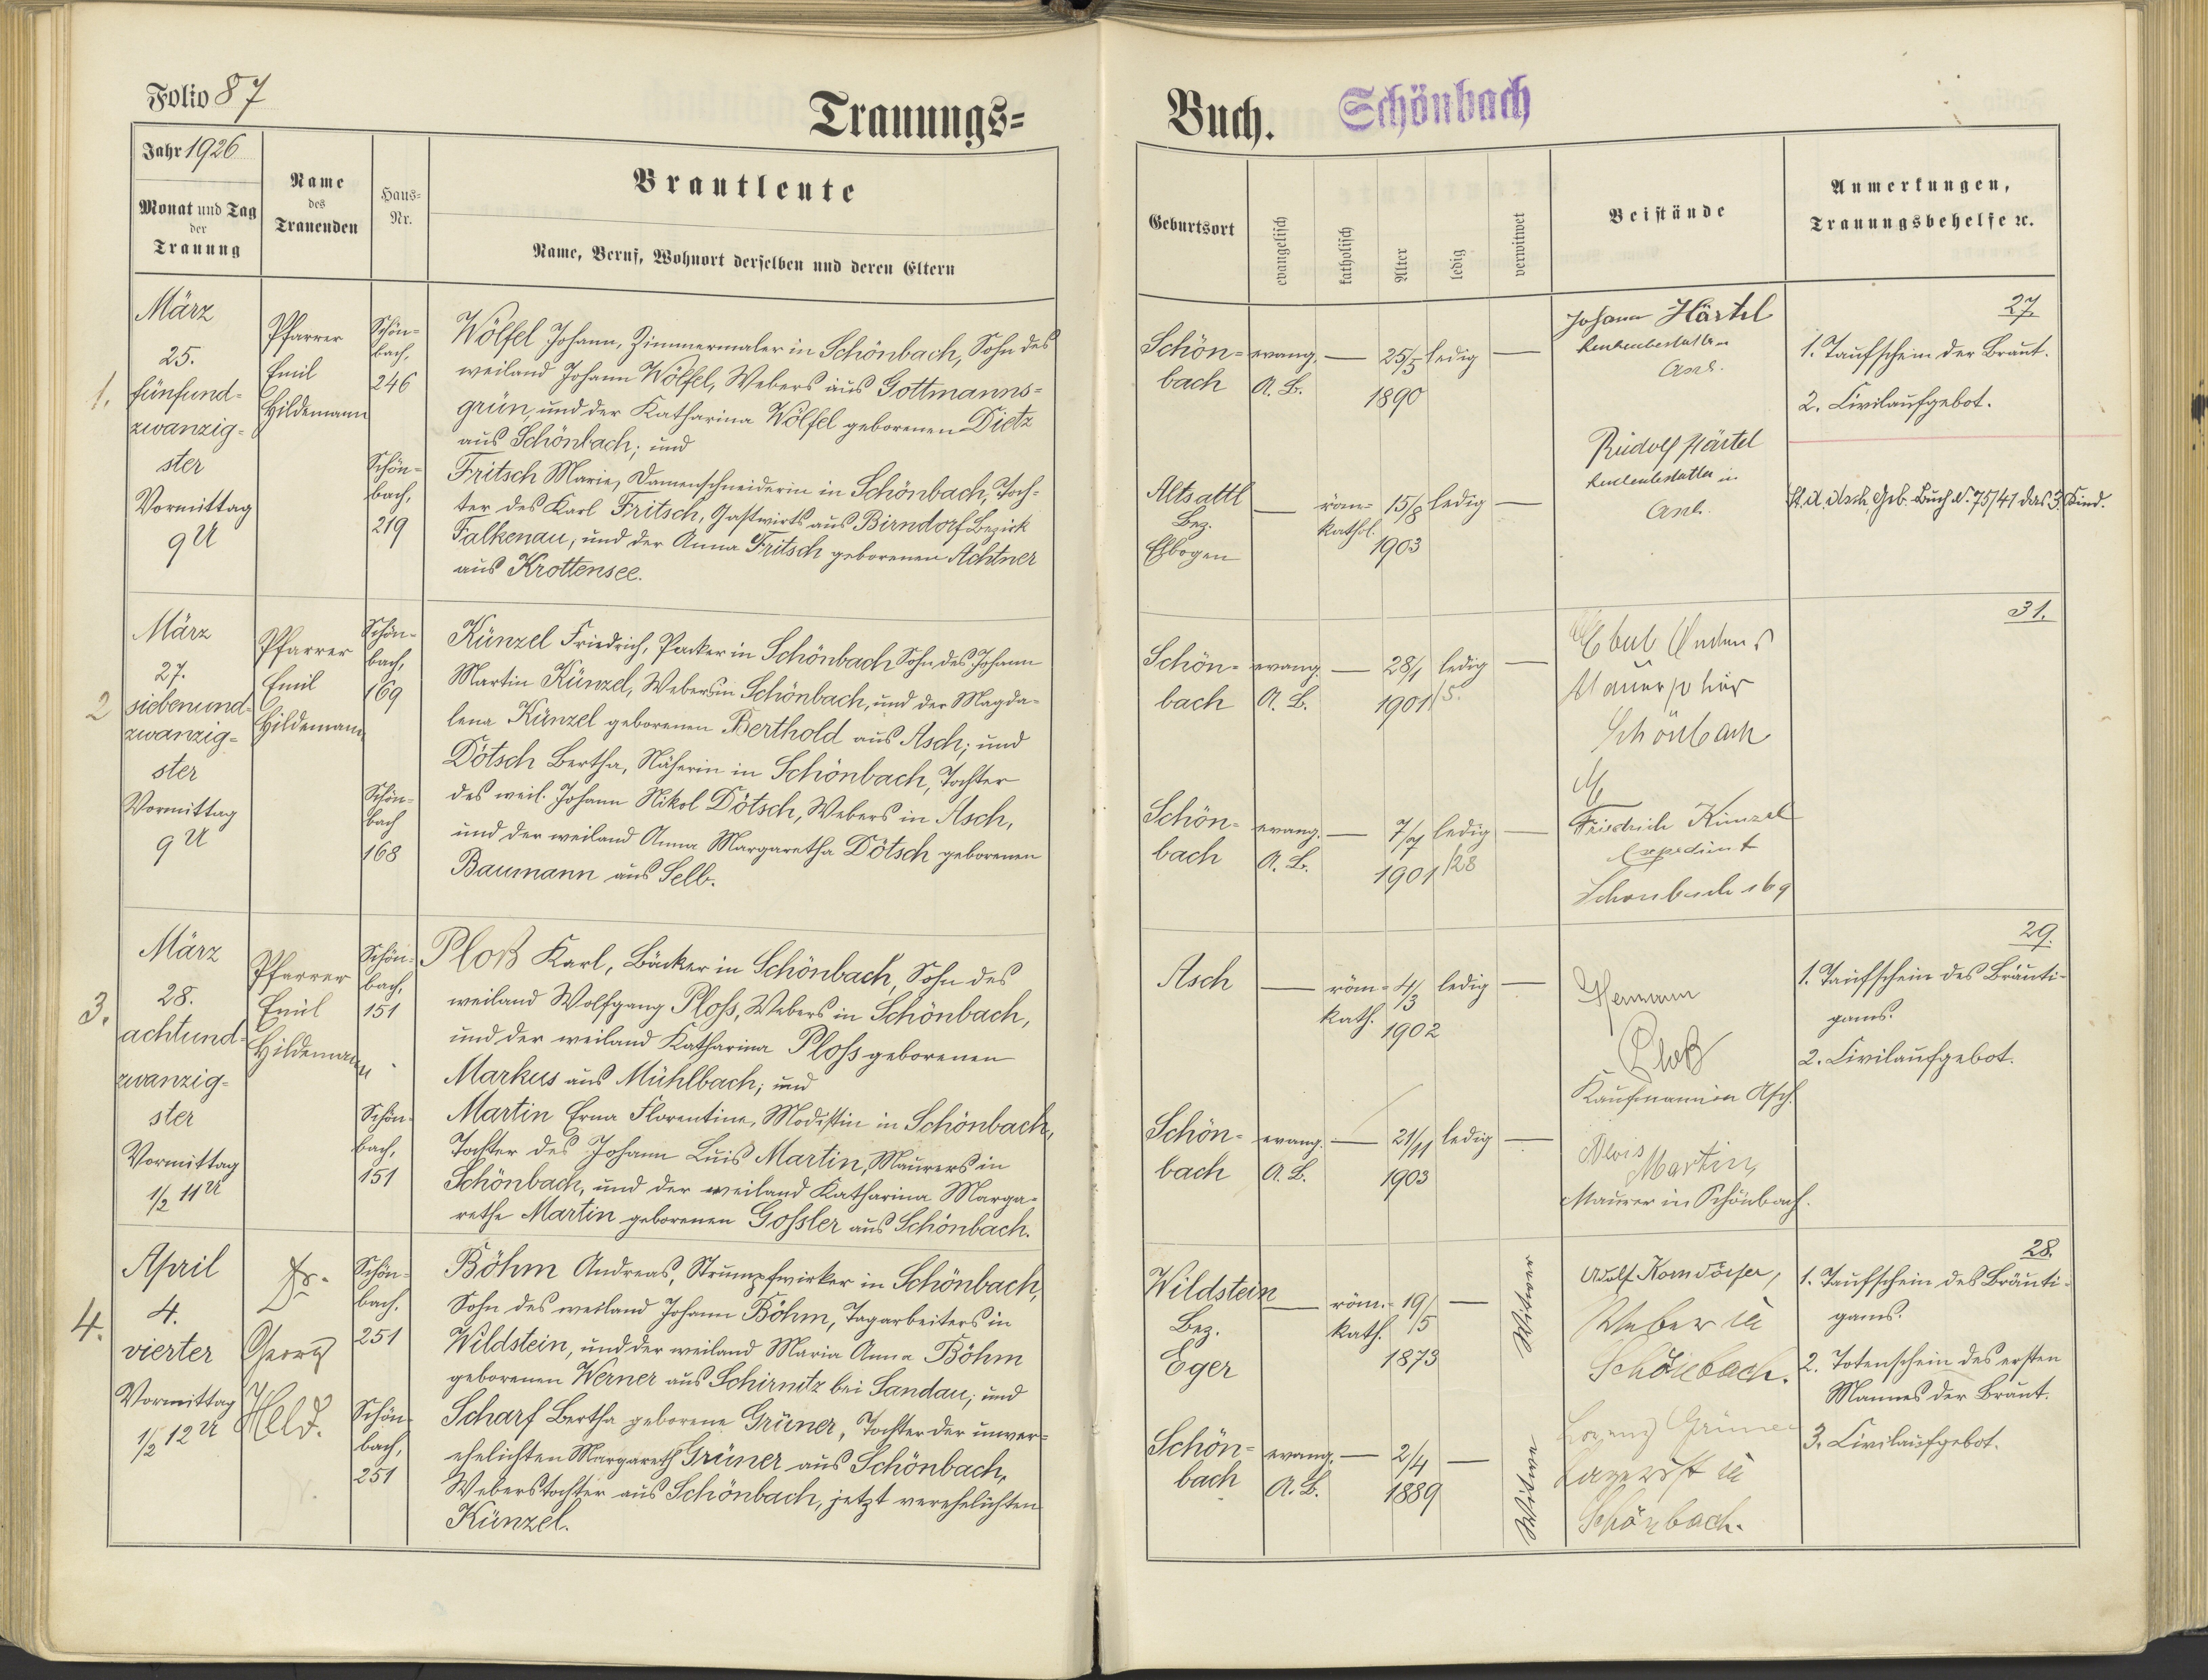 Folio 87
Trauungs=
Buch.
Schönbach
Jahr 1926
Monat und Tag
der
Trauung
Name
des
Trauenden
Haus=
Nr.
Brautleute
Name, Beruf, Wohnort derselben und deren Eltern
Geburtsort
evangelisch
katholisch
Alter
ledig
verwitwet
Beistände
Anmerkungen,
Trauungsbehelfe ꝛc.
1.
März
25.
fünfund=
zwanzig=
ster
Vormittag
9 U
Pfarrer
Emil
Hildemann
Schön=
bach,
246
Schön=
bach,
219
Wölfel Johann, Zimmermaler in Schönbach, Sohn des
weiland Johann Wölfel, Webers aus Gottmanns=
grün, und der Katharina Wölfel geborenen Dietz
aus Schönbach; und
Fritsch Marie, Damenschneiderin in Schönbach, Toch=
ter des Karl Fritsch, Gastwirts aus Birndorf Bezirk
Falkenau, und der Anna Fritsch geborenen Achtner
aus Krottensee.
Schön=
bach
evang.
A. B.
—
25/5
1890
ledig
—
Altsattl
Bez.
Elbogen
—
röm=
kathol.
15/8
1903
ledig
—
Johann Härtel
Asch.
Rudolf Härtel
Asch.
27.
1. Taufschein der Braut.
2. Civilaufgebot.
St. A. Asch, Geb. Buch N. 75/41 das 3. Kind.
2
März
27.
siebenund=
zwanzig=
ster
Vormittag
9 U
Pfarrer
Emil
Hildemann
Schön=
bach,
169
Schön=
bach
168
Künzel Friedrich, Packer in Schönbach Sohn des Johann
Martin Künzel, Webers in Schönbach, und der Magda=
lena Künzel geborenen Berthold aus Asch; und
Dötsch Bertha, Näherin in Schönbach, Tochter
des weil. Johann Nikol Dötsch, Webers in Asch,
und der weiland Anna Margaretha Dötsch geborenen
Baumann aus Selb.
Schön=
bach
evang.
A. B.
—
28/1
1901
/5.
ledig
—
Schön=
bach
evang.
A. B.
—
7/7
1901
/28
ledig
—
Schönbach
Friedrich Künzel
Expedient
Schönbach 169
31.
3.
März
28.
achtund=
zwanzig=
ster
Vormittag
1/2 11 U
Pfarrer
Emil
Hildemann
Schön=
bach,
151
Schön=
bach,
151
Ploß Karl, Bäcker in Schönbach, Sohn des
weiland Wolfgang Ploss, Webers in Schönbach,
und der weiland Katharina Ploss geborenen
Markus aus Mühlbach; und
Martin Erna Florentine, Modistin in Schönbach,
Tochter des Johann Luis Martin, Maurers in
Schönbach, und der weiland Katharina Marga=
rethe Martin geborenen Gossler aus Schönbach.
Asch
—
röm=
kath.
4/3
1902
ledig
—
Schön=
bach
evang.
A. B.
—
21/11
1903
ledig
—
Hermann
Ploß
Kaufmann in Asch.
Alois
Martin,
Maurer in Schönbach.
29.
1. Taufschein des Bräuti=
gams.
2. Civilaufgebot.
4.
April
4.
vierter
Vormittag
1/2 12 U
Dr.
Georg
Held.
Schön=
bach.
251
Schön=
bach,
251
Böhm Andreas, Strumpfwirker in Schönbach,
Sohn des weiland Johann Böhm, Tagarbeiters in
Wildstein, und der weiland Maria Anna Böhm
geborenen Werner aus Schirnitz bei Sandau; und
Scharf Bertha geborene Grüner, Tochter der unver=
ehelichten Margareth Grüner aus Schönbach,
Weberstochter aus Schönbach, jetzt verehelichten
Künzel.
Wildstein
Bez.
Eger
—
röm.=
kath.
19/5
1873
—
Witwer
Schön=
bach
evang.
A. B.
—
2/4
1889
—
Witwe
Adolf Korndörfer,
Weber in
Schönbach.
Lorenz Grüner
in
Schönbach.
28.
1. Taufschein des Bräuti=
gams.
2. Totenschein des ersten
Mannes der Braut.
3. Civilaufgebot.